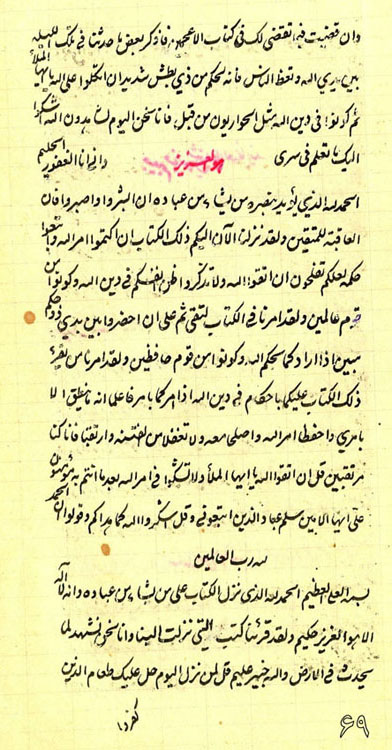 وان قضيت فيه تقضي لك في كتاب الاعجمين فاذكر بعض ما حدثنا في تلك الليلة
بين يدي الله وتعظ الناس فانه لحكم من ذي بطش شديد ان اتكلوا على الله يا ايها الملأ
ثم كونوا في دين الله مثل الحواريون من قبل فانا نحن اليوم لشاهدون الله اشكوا
اليك ما تعلم في سري هو العزيز وانك انت الغفور الحليم
الحمد لله الذي يؤيد بنصره من يشاء من عباده ان ابشروا واصبروا فان
العاقبة للمتقين ولقد نزلنا الآن اليكم ذلك الكتاب ان اكتموا امر الله واتبعوا
حكمه لعلكم تفلحون ان اتقوا الله ولا تذكروا انفسكم في دين الله وكونوا من
قوم عالمين ولقد امرنا في الكتاب لتقي ثم علي ان احضروا بين يدي ذو حكم
مبين اذا اراد كما سحكم الله وكونوا من قوم حافظين ولقد امرنا من يقرء
ذلك الكتاب عليكما باحكام في دين الله اذ امركما بامر فاعلما انه ما ينطق الا
بامري واحفظا امر الله واصلي معه ولا تغفلا من لفتنة وارتقبا فانا كنا
مرتقبين قل ان اتقوا الله يا ايها الملأ ولا تشكوا في امر الله بعد ما انتم به موقنون
على ايها الامين سلم عباد الذين اتبعوني وقل شكروا الله كما هداكم وقولوا ان الحمد
لله رب العالمين
بسم الله العلي العظيم الحمد لله الذي نزل الكتاب على من يشاء من عباده وانه لا اله
الا هو العزيز حكيم ولقد قرأنا كتب التي نزلت الينا وانا نحن لنشهد لما
يحدث في الارض والله خبير عليم قل لمن نزل اليوم حل عليك طعام الذين
كفروا
٦٩